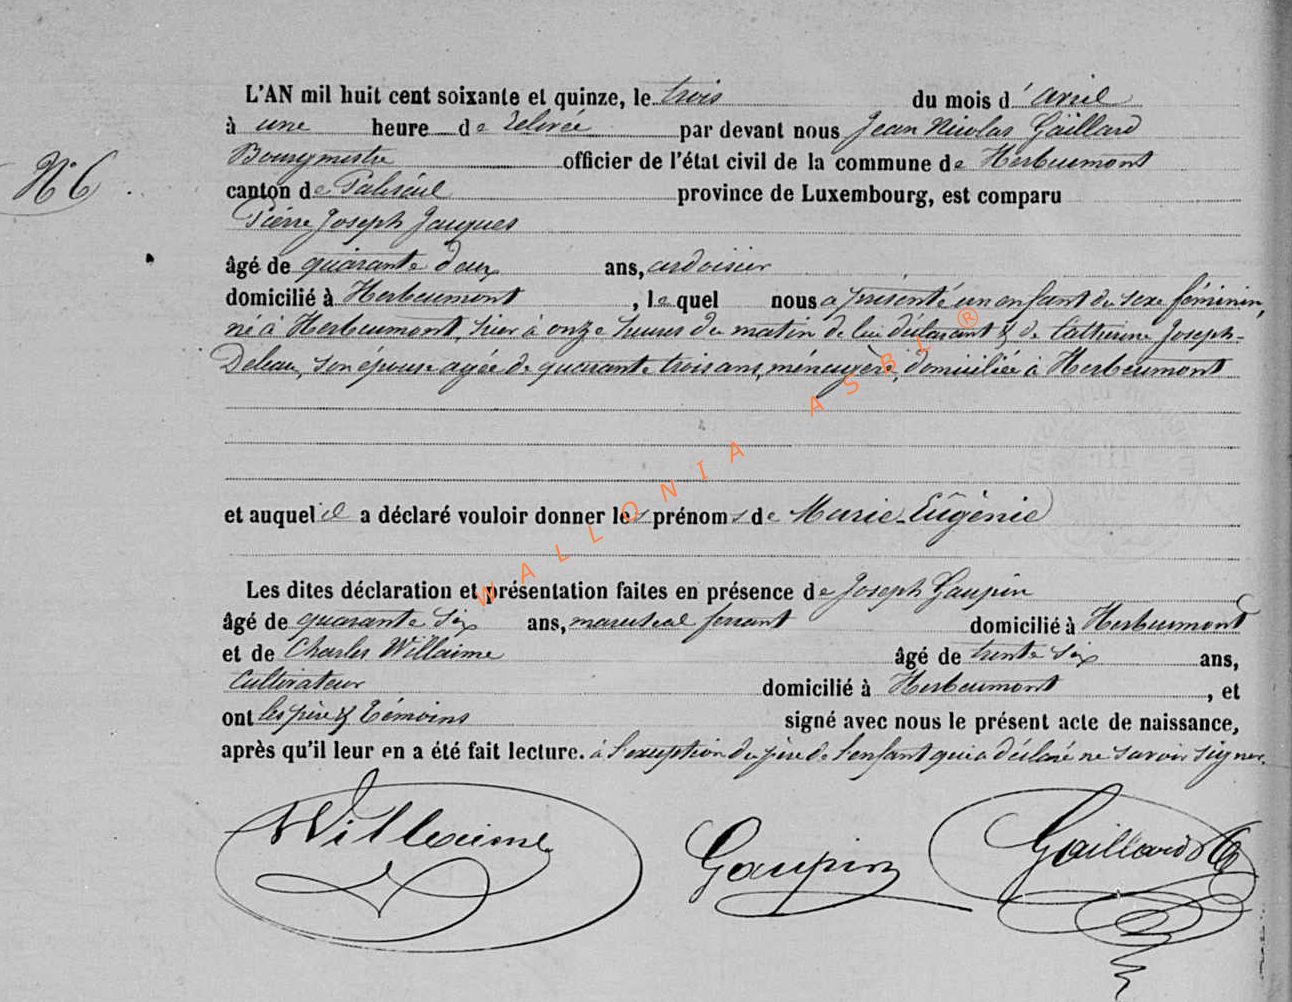 L'AN mil huit cent soixante et quinze, le trois du mois d' avril
à une heure de relevée par devant nous Jean Nicolas Gaillard
Bourgmestre officier de l'état civil de la commune de Herbeumont
N° 6
canton de Paliseul province de Luxembourg, est comparu
Pierre Joseph Jacques
âgé de quarante deux ans, ardoisier
domicilié à Herbeumont, lequel nous a présenté un enfant du sexe féminin,
né à Herbeumont, hier à onze heures du matin de lui déclarant & de Catherine Joseph-
Deleau, son épouse agée de quarante trois ans, ménagère, domiciliée à Herbeumont
et auquel il a déclaré vouloir donner les prénoms de Marie-Eugénie
Les dites déclaration et présentation faites en présence de Joseph Gaupin
âgé de quarante six ans, maréchal ferrant domicilié à Herbeumont
et de Charles Willaime âgé de trente six ans,
Cultivateur domicilié à Herbeumont, et
ont les père & témoins signé avec nous le présent acte de naissance,
après qu'il leur en a été fait lecture. à l'exception du père de l'enfant qui a déclaré ne savoir signer.
Willaime Gaupin Gaillard
WALLONIA ASBL ®